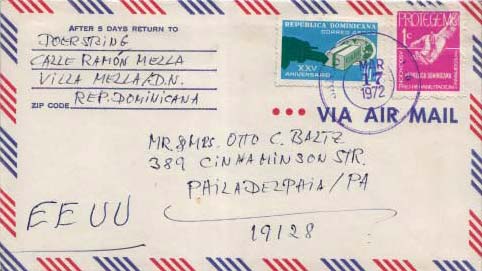 AFTER 5 DAYS RETURN TO
DOERSTRING
CALLE RAMÓN MELLA
VILLA MELLA/D.N.
ZIP CODE REP. DOMINICANA
REPUBLICA DOMINICANA
CORREO AEREO
XXV
ANIVERSARIO
PROTEGEME
1c
REPUBLICA DOMINICANA
MAR
17
1972
VIA AIR MAIL
MR. & MRS. OTTO C. BALTZ
389 CINNAMINSON STR.
PHILADELPAIA/PA
19128
EEUU